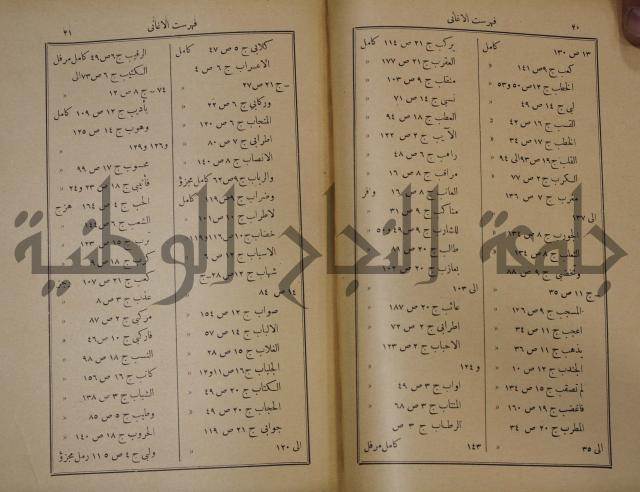 ٤٠
فهرست الاغانى
١٣ ص ١٣٠ كامل
كعب ج ٩ ص ١٤١ »
الخطب ج ١٢ ص ٥٠ و ٥٣ »
لبى ج ١٤ ص ٤٩ »
القسب ج ١٦ ص ٤٢ »
الخطب ج ١٧ ص ٣٤ »
القلب ج ١٩ ص ٩٣ الى ٩٤ »
الكرب ج ٢ ص ٧٧ »
مغرب ج ٧ ص ١٣٦
الى ١٣٧
ج ٨ ص ١٣٤
ج ٨ ص ١٣٤
ج ٩ ص ٨٨
ـ ج ١١ ص ٣٥
المسجب ج ٩ ص ١٢٦ »
اعجب ج ١١ ص ٣٤ »
يذهب ج ١١ ص ٣٦ »
الجندب ج ١٢ ص ١٠ »
لم تصقب ج ١٥ ص ١٣٤ »
فاغضب ج ١٩ ص ١٦٠ »
المطرب ج ٢٠ ص ٣٤
الى ٣٥ »
يركب ج ٢١ ص ١١٤ كامل
العقرب ج ٢١ ص ١٧٧ »
منقلب ج ٩ ص ١٠٣ »
نسبى ج ١٤ ص ٧١ »
العطب ج ١٨ ص ٩٤ »
الآيب ج ٢ ص ١٢٢ »
راهب ج ٦ ص ٤٨ »
مراقب ج ٨ ص ١٦ »
العاتب ج ٨ ص ١٦ وفر
ج ٩ ص ٣١
للشارب ج ٩ ص ٤٩ و ٥٤
طالب ج ٢٠ ص ٨٨
ج ٢٠ ص ١٠٢
الى ١٠٣ »
عائب ج ٢٠ ص ١٨٧ »
اطرابى ج ٢ ص ٧٢ »
الاحباب ج ٢ ص ١٢٣
و ١٢٤ »
اواب ج ٣ ص ٤٩ »
المنتاب ج ٣ ص ٦٨ »
الرطاب ج ٣ ص
١٤٣ كامل مرفل
فهرست الاغانى
٤١
كلابى ج ٥ ص ٤٧ كامل
الاعراب ج ٦ ص ٤
ـ ج ٢١ ص ٢٧ »
وركابى ج ٦ ص ٢٢ »
المنجاب ج ٦ ص ١٢٠ »
اطرابى ج ٧ ص ٨٠ »
الانصاب ج ٨ ص ١٤٠ »
والرباب ج ٩ ص ٦٢ كامل مجزؤ
وضراب ج ٩ ص ١١٩ كامل
لاطراب ج ١٠ ص ١٠١
خضاب ج ١٠ ص ١١٦ و ١١٩
الاسباب ج ١٢ ص ٦
شهاب ج ١٢ ص ٢٨ ـ ج
١٤ ص ٨٤
صواب ج ١٢ ص ١٥٤ »
الالباب ج ١٤ ص ٥٧ »
الغلاب ج ١٥ ص ٢٨ »
الجلباب ج ١٦ ص ١١ و ١٢ »
الكتاب ج ٢٠ ص ٤٩ »
الحجاب ج ٢٠ ص ٤٩ »
جوابى ج ٢١ ص ١١٩
الى ١٢٠ »
الرقيب ج ٦ ص ٤٩ كامل مرفل
الكثيب ج ٦ ص ٧٣ الى
٧٤ ـ ج ٨ ص ١٢ »
بأديب ج ١٢ ص ١٠٩ كامل
وهوب ج ١٤ ص ١٢٥
و ١٢٦ و ١٢٩ »
محسوب ج ١٧ ص ٩٩ »
فأتيبى ج ١٨ ص ٢٣ و ٢٤ »
الحب ج ٤ ص ١٦٤ هزج
الشعب ج ٦ ص ١٤٤
ج ١٥ ص ١٢٣
ج ١٨ ص
كعب ج ٢١ ص ١٠٧ رجز
عذب ج ٣ ص ٨ »
مركبى ج ٢ ص ٨٧ »
فاركبى ج ١٠ ص ٤٦ »
النسب ج ١٨ ص ٩٨ »
كاتب ج ١٦ ص ١٥٦ »
الشباب ج ٣ ص ١٣٨ »
وطيب ج ٥ ص ٨٥ »
الحروب ج ١٨ ص ١٤٠ »
ولبى ج ٤ ص ١١٥ رمل مجزؤ
جامعة النجاح الوطنية